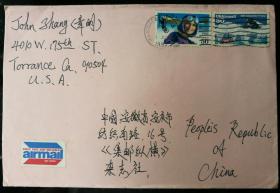 John Zhang (章的)
4010 W. 175th ST.
Torrance Ca. 90504
U.S.A.
中国安徽省安庆市
纺织南路16号
《集邮纵横》
杂志社
People's Republic
of
China
airmail